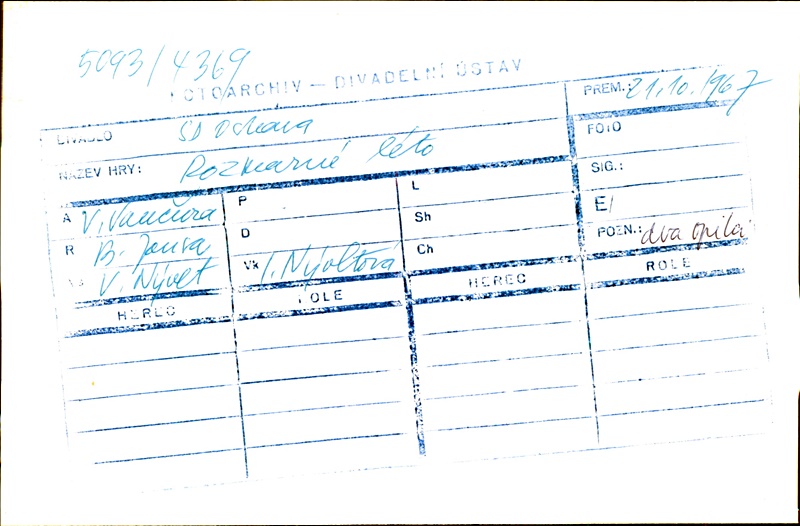 5093/4369
FOTOARCHIV – DIVADELNÍ ÚSTAV
PREM.: 21.10.1967
DIVADLO SD Ostrava
FOTO
NÁZEV HRY: Rozmarné léto
SIG.:
A V. Vančura P L
E/
R B. Jansa D Sh
POZN.: dva opilci
V. Nývlt Vk J. Nývltová Ch
HEREC ROLE HEREC ROLE